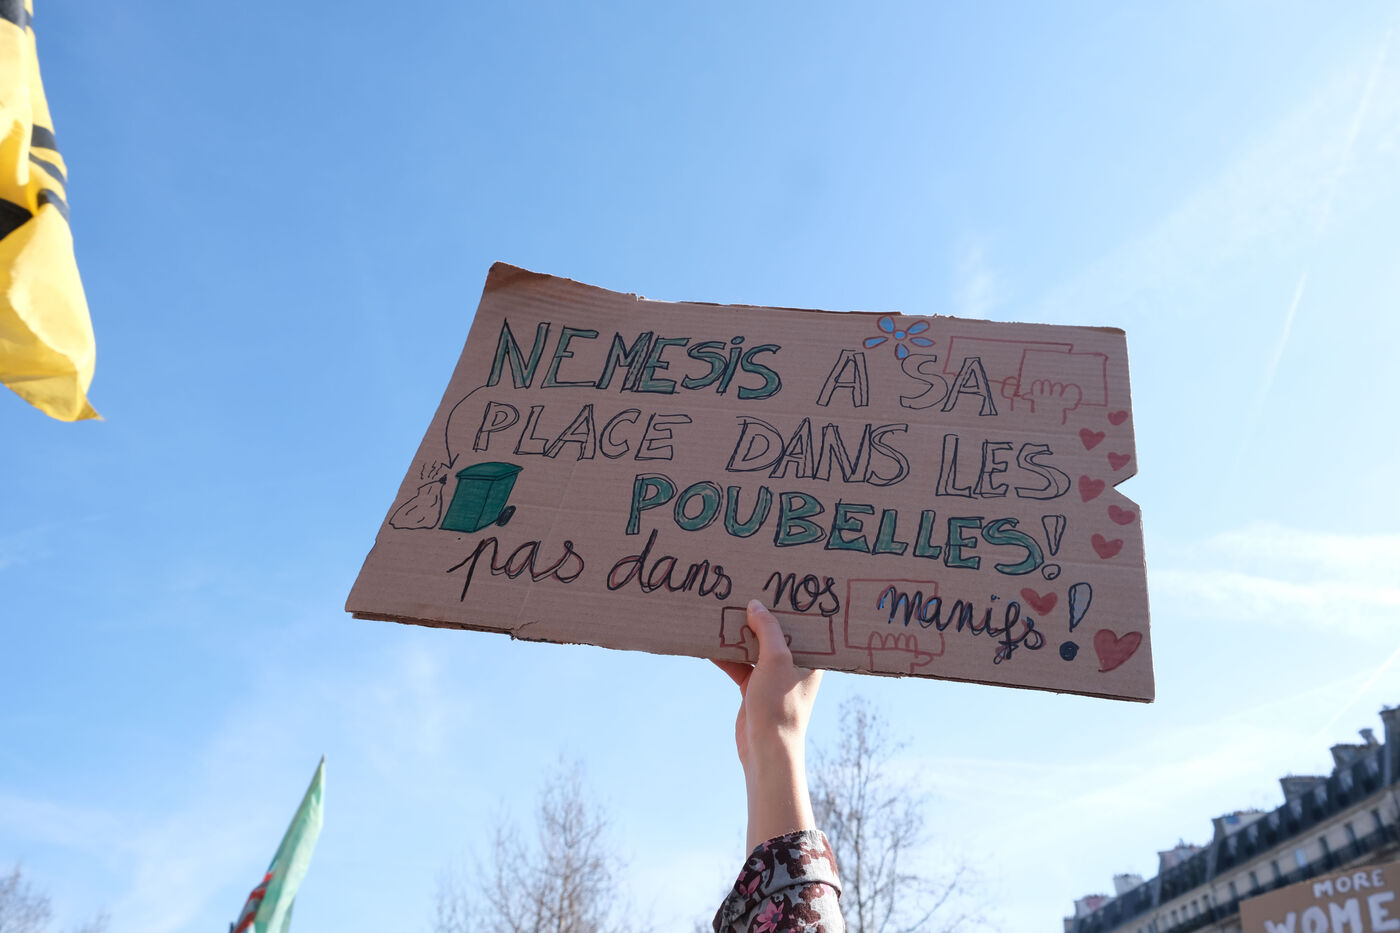 NEMESiS A SA
PLACE DANS LES
POUBELLES!
pas dans nos manifs!
MORE
WOME